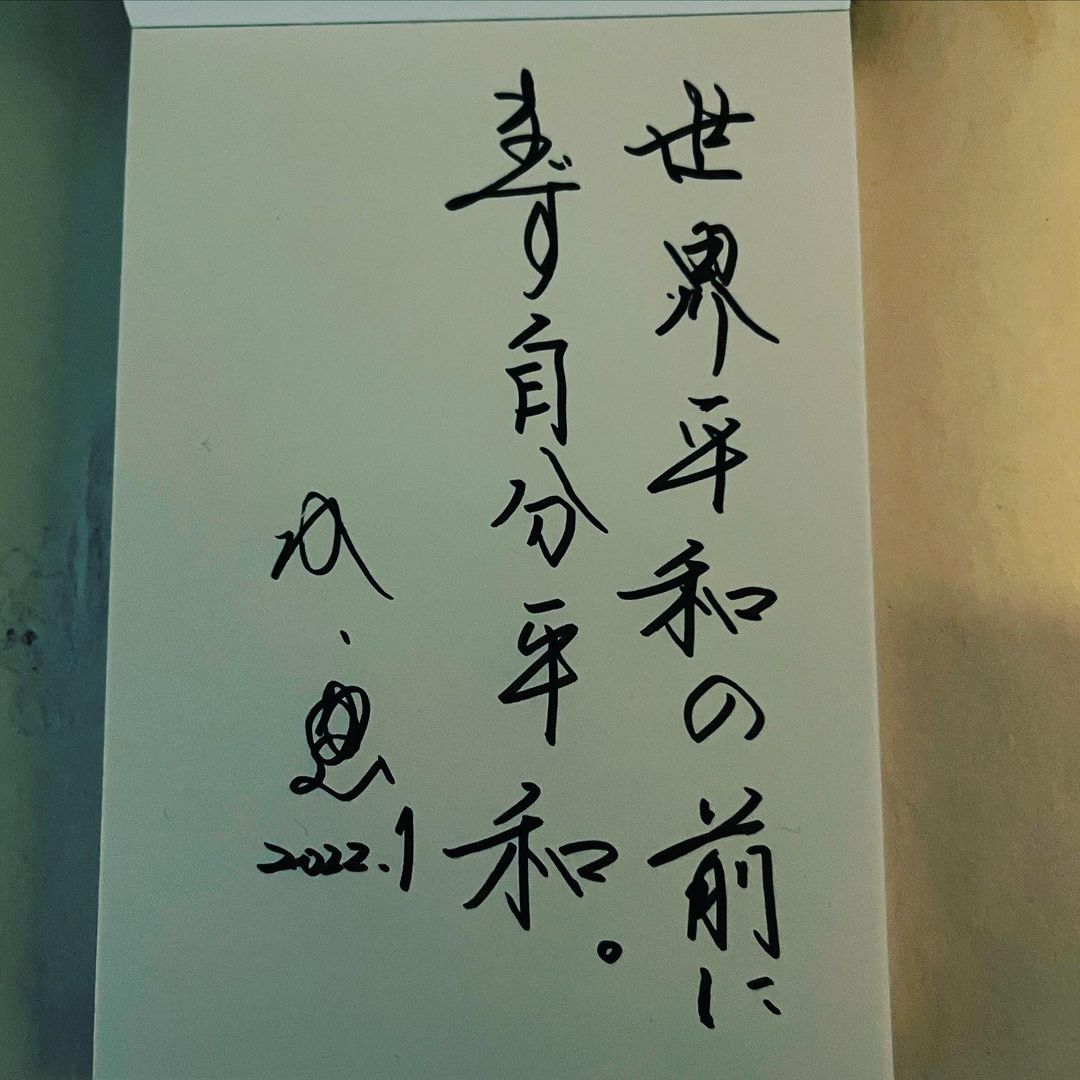 世界平和の前に
まず自分平和。
2022.1